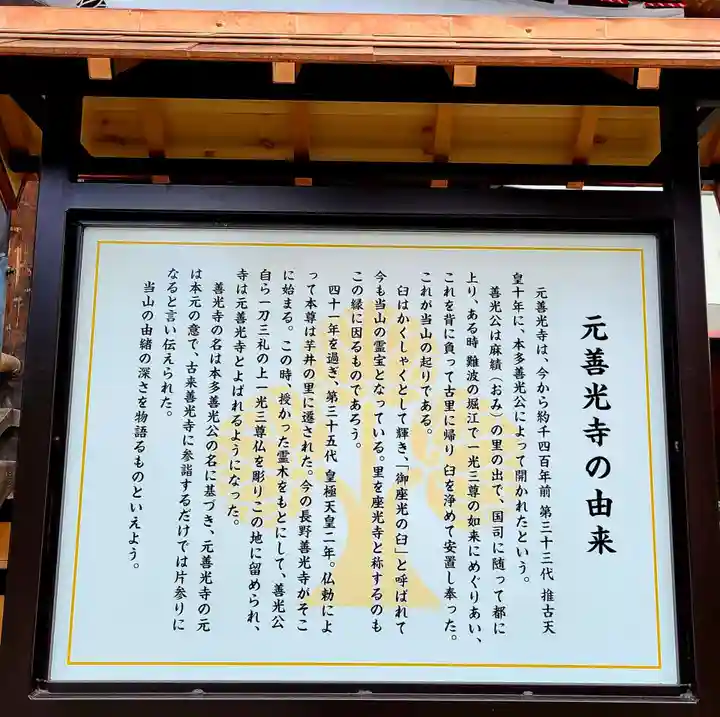 元善光寺の由来
元善光寺は、今から約千四百年前 第三十三代 推古天
皇十年に、本多善光公によって開かれたという。
善光公は麻績（おみ）の里の出で、国司に随って都に
上り、ある時 難波の堀江で一光三尊の如来にめぐりあい、
これを背に負って古里に帰り 臼を浄めて安置し奉った。
これが当山の起りである。
臼はかくしゃくとして輝き、「御座光の臼」と呼ばれて
今も当山の霊宝となっている。里を座光寺と称するのも
この縁に因るものであろう。
四十一年を過ぎ、第三十五代 皇極天皇二年。仏勅によ
って本尊は芋井の里に遷された。今の長野善光寺がそこ
に始まる。この時、授かった霊木をもとにして、善光公
自ら一刀三礼の上一光三尊仏を彫りこの地に留められ、
寺は元善光寺とよばれるようになった。
善光寺の名は本多善光公の名に基づき、元善光寺の元
は本元の意で、古来善光寺に参詣するだけでは片参りに
なると言い伝えられた。
当山の由緒の深さを物語るものといえよう。